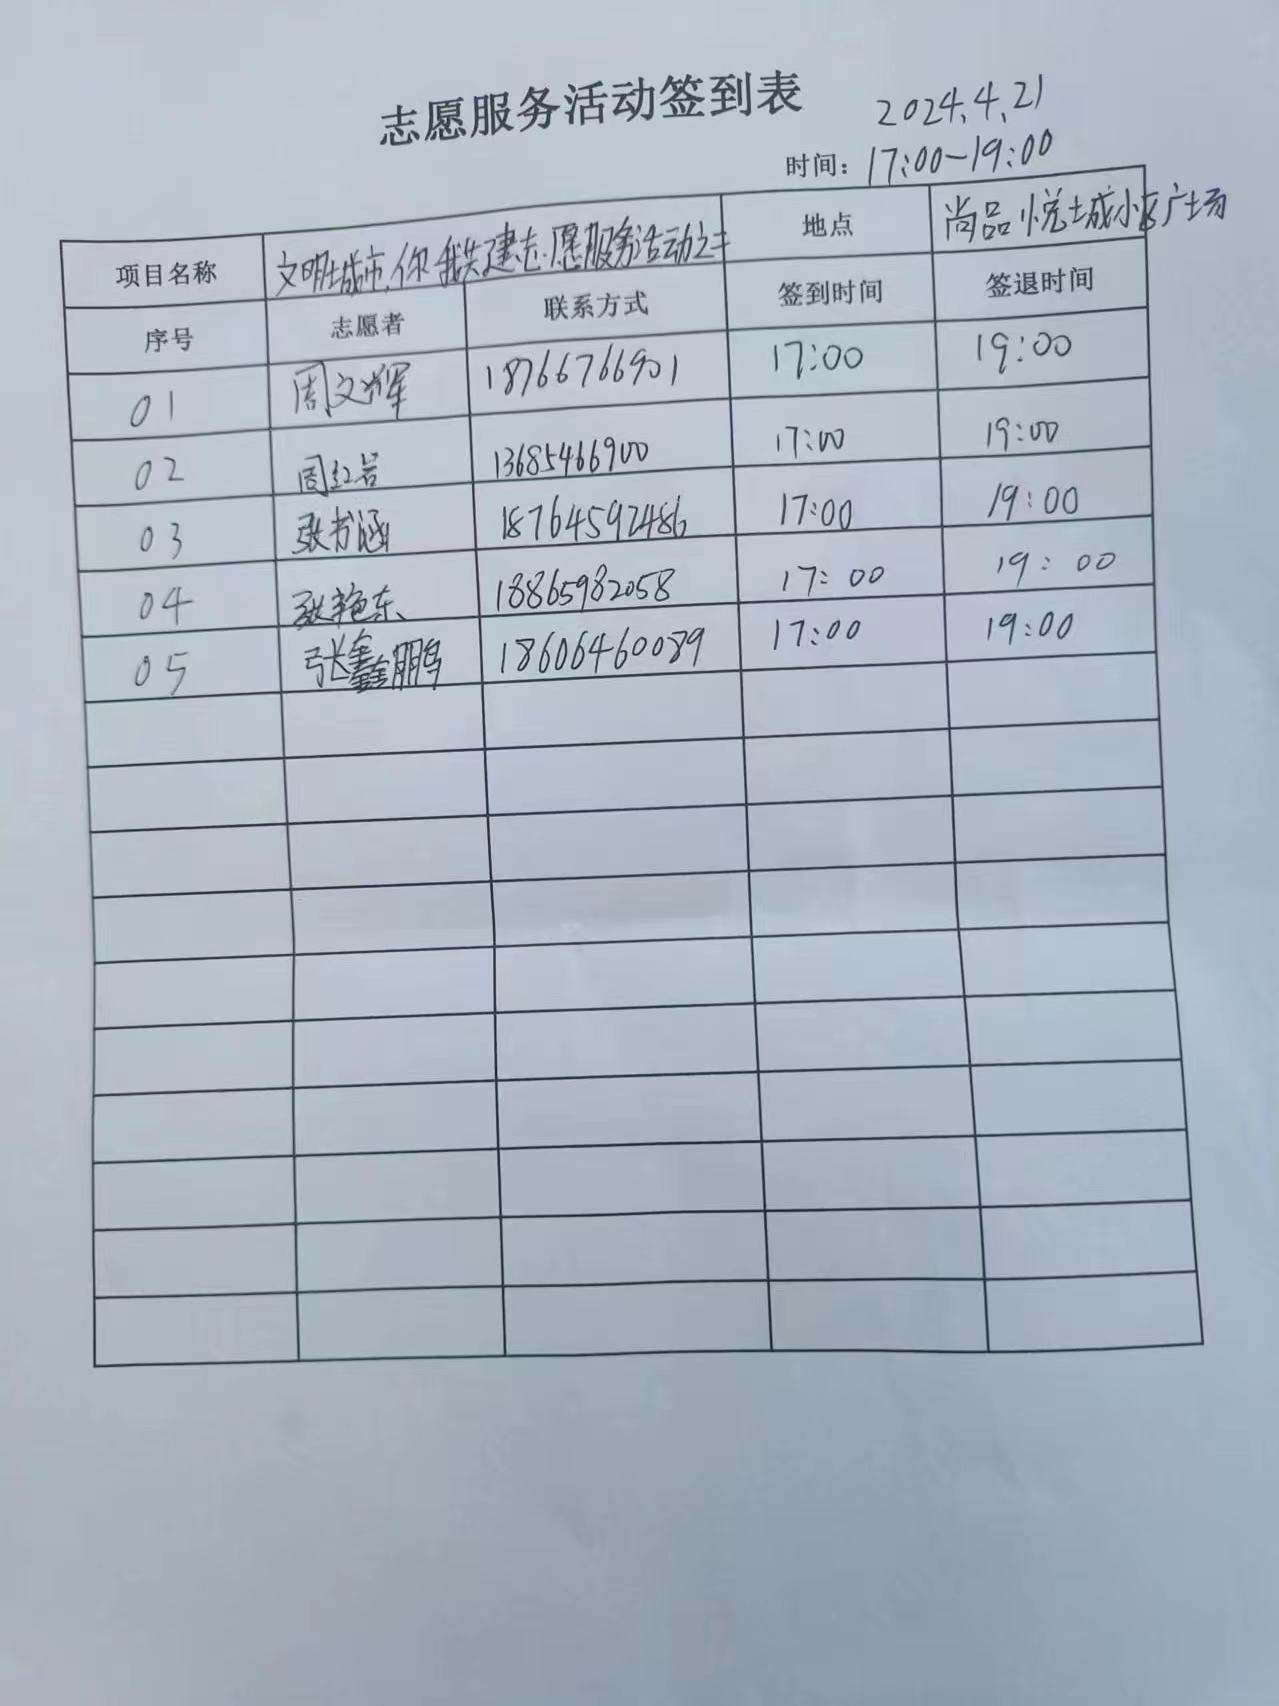 志愿服务活动签到表
2024.4.21
时间：17:00-19:00
项目名称 文明城市,你我共建志愿服务活动之二 地点 尚品悦城小区广场
序号 志愿者 联系方式 签到时间 签退时间
01 周文辉 18766766901 17:00 19:00
02 周红岩 13685466900 17:00 19:00
03 张书涵 18764592486 17:00 19:00
04 张艳东 18865982058 17:00 19:00
05 张鑫鹏 18606460089 17:00 19:00